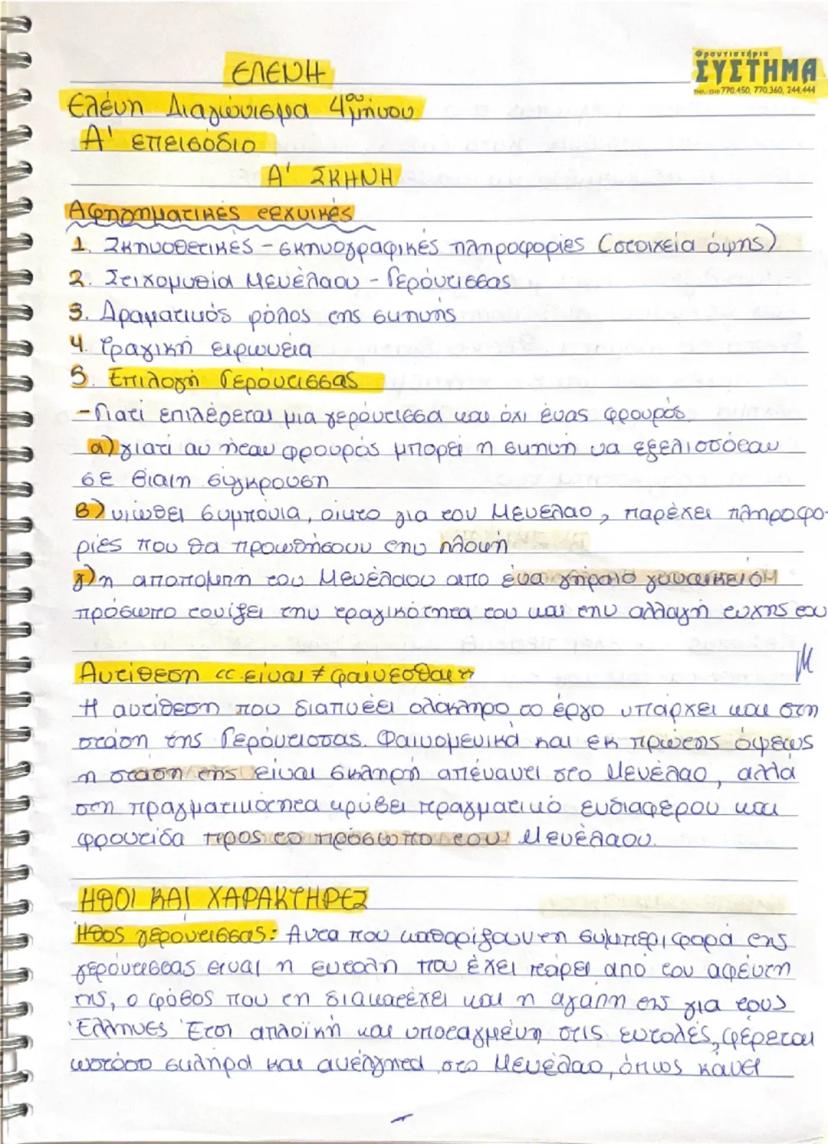 ΕΛΕΝΗ
Φροντιστήρια
ΣΥΣΤΗΜΑ
770.450, 770.360, 244.444
Ελένη Διαγώνισμα 4ου μήνου
Α' επεισόδιο
Α' ΣΚΗΝΗ
Αφηγηματικές τεχνικές
1. Σκηνοθετικές - σκηνογραφικές πληροφορίες (στοιχεία όψης)
2. Στιχομυθία Μενέλαου - Γερόντισσας
3. Δραματικός ρόλος της σκηνής
4. Τραγική ειρωνεία
5. Επιλογή Γερόντισσας
- Γιατί επιλέγεται μια γερόντισσα και όχι ένας φρουρός.
α) γιατί αν ήταν φρουρός μπορεί η σκηνή να εξελισσόταν
σε βίαιη σύγκρουση
β) νιώθει συμπόνια, οίκτο για τον Μενέλαο, παρέχει πληροφο-
ρίες που θα προωθήσουν την πλοκή
γ) η αποπομπή του Μενέλαου από ένα γηραιό γυναικείο
πρόσωπο τονίζει την τραγικότητα του και την αλλαγή τύχης του
Αντίθεση «είναι ≠ φαίνεσθαι»
Η αντίθεση που διαπνέει ολόκληρο το έργο υπάρχει και στη
στάση της Γερόντισσας. Φαινομενικά και εκ πρώτης όψεως
η στάση της είναι σκληρή απέναντι στο Μενέλαο, αλλά
στη πραγματικότητα κρύβει πραγματικό ενδιαφέρον και
φροντίδα προς το πρόσωπο του Μενέλαου.
ΗΘΟΙ ΚΑΙ ΧΑΡΑΚΤΗΡΕΣ
Ηθος γερόντισσας: Αυτα που καθορίζουν τη συμπεριφορά της
γερόντισσας ειναι η εντολή που έχει πάρει από τον αφέντη
της, ο φόβος που τη διακατέχει και η αγάπη της για τους
Έλληνες Έτσι απλοϊκή και υποταγμένη στις εντολές, φέρεται
ωστόσο σκληρά και ανέλπιτα στο Μενέλαο, όπως κάνει